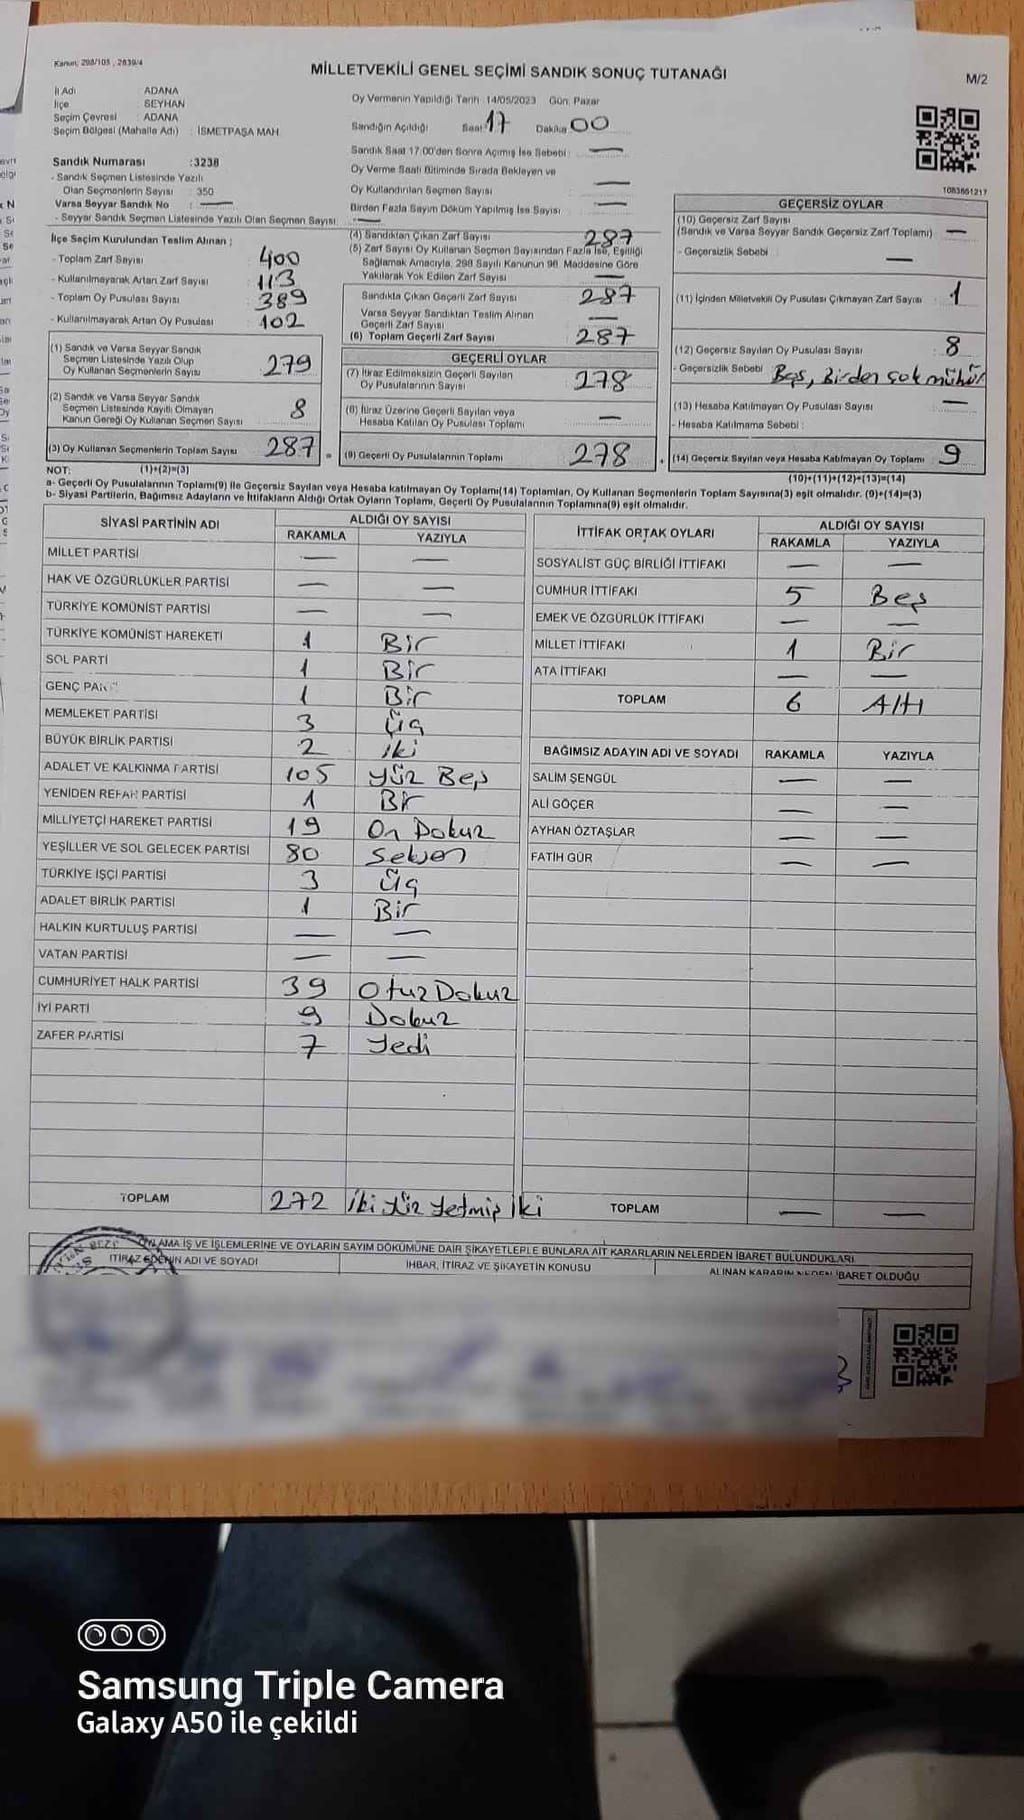 Kanun: 298/105 , 2839/4
MİLLETVEKİLİ GENEL SEÇİMİ SANDIK SONUÇ TUTANAĞI
M/2
İl Adı ADANA
İlçe SEYHAN
Seçim Çevresi : ADANA
Seçim Bölgesi (Mahalle Adı) : İSMETPAŞA MAH.
Oy Vermenin Yapıldığı Tarih :14/05/2023 Gün: Pazar
Sandığın Açıldığı Saat 17 Dakika 00
Sandık Saat 17:00'den Sonra Açılmış İse Sebebi : —
Oy Verme Saati Bitiminde Sırada Bekleyen ve
Oy Kullandırılan Seçmen Sayısı —
Birden Fazla Sayım Döküm Yapılmış İse Sayısı —
Sandık Numarası :3238
- Sandık Seçmen Listesinde Yazılı
Olan Seçmenlerin Sayısı : 350
Varsa Seyyar Sandık No : —
- Seyyar Sandık Seçmen Listesinde Yazılı Olan Seçmen Sayısı: —
1083661217
İlçe Seçim Kurulundan Teslim Alınan ;
- Toplam Zarf Sayısı 400
- Kullanılmayarak Artan Zarf Sayısı 113
- Toplam Oy Pusulası Sayısı 389
- Kullanılmayarak Artan Oy Pusulası 102
(1) Sandık ve Varsa Seyyar Sandık
Seçmen Listesinde Yazılı Olup
Oy Kullanan Seçmenlerin Sayısı 279
(2) Sandık ve Varsa Seyyar Sandık
Seçmen Listesinde Kayıtlı Olmayan
Kanun Gereği Oy Kullanan Seçmen Sayısı 8
(3) Oy Kullanan Seçmenlerin Toplam Sayısı 287
(1)+(2)=(3)
(4) Sandıktan Çıkan Zarf Sayısı 287
(5) Zarf Sayısı Oy Kullanan Seçmen Sayısından Fazla İse, Eşitliği
Sağlamak Amacıyla, 298 Sayılı Kanunun 98. Maddesine Göre
Yakılarak Yok Edilen Zarf Sayısı —
Sandıkta Çıkan Geçerli Zarf Sayısı 287
Varsa Seyyar Sandıktan Teslim Alınan
Geçerli Zarf Sayısı —
(6) Toplam Geçerli Zarf Sayısı 287
GEÇERLİ OYLAR
(7) İtiraz Edilmeksizin Geçerli Sayılan
Oy Pusulalarının Sayısı 278
(8) İtiraz Üzerine Geçerli Sayılan veya
Hesaba Katılan Oy Pusulası Toplamı —
(9) Geçerli Oy Pusulalarının Toplamı 278
GEÇERSİZ OYLAR
(10) Geçersiz Zarf Sayısı
(Sandık ve Varsa Seyyar Sandık Geçersiz Zarf Toplamı) —
- Geçersizlik Sebebi : —
(11) İçinden Milletvekili Oy Pusulası Çıkmayan Zarf Sayısı 1
(12) Geçersiz Sayılan Oy Pusulası Sayısı 8
- Geçersizlik Sebebi : Boş, Birden çok mühür
(13) Hesaba Katılmayan Oy Pusulası Sayısı —
- Hesaba Katılmama Sebebi :
(14) Geçersiz Sayılan veya Hesaba Katılmayan Oy Toplamı 9
(10)+(11)+(12)+(13)=(14)
NOT:
a- Geçerli Oy Pusulalarının Toplamı(9) ile Geçersiz Sayılan veya Hesaba katılmayan Oy Toplamı(14) Toplamları, Oy Kullanan Seçmenlerin Toplam Sayısına(3) eşit olmalıdır. (9)+(14)=(3)
b- Siyasi Partilerin, Bağımsız Adayların ve İttifakların Aldığı Ortak Oyların Toplamı, Geçerli Oy Pusulalarının Toplamına(9) eşit olmalıdır.
SİYASİ PARTİNİN ADI ALDIĞI OY SAYISI
RAKAMLA YAZIYLA
MİLLET PARTİSİ — —
HAK VE ÖZGÜRLÜKLER PARTİSİ — —
TÜRKİYE KOMÜNİST PARTİSİ — —
TÜRKİYE KOMÜNİST HAREKETİ 1 Bir
SOL PARTİ 1 Bir
GENÇ PARTİ 1 Bir
MEMLEKET PARTİSİ 3 Üç
BÜYÜK BİRLİK PARTİSİ 2 iki
ADALET VE KALKINMA PARTİSİ 105 Yüz Beş
YENİDEN REFAH PARTİSİ 1 Bir
MİLLİYETÇİ HAREKET PARTİSİ 19 On Dokuz
YEŞİLLER VE SOL GELECEK PARTİSİ 80 Seksen
TÜRKİYE İŞÇİ PARTİSİ 3 Üç
ADALET BİRLİK PARTİSİ 1 Bir
HALKIN KURTULUŞ PARTİSİ — —
VATAN PARTİSİ — —
CUMHURİYET HALK PARTİSİ 39 Otuz Dokuz
İYİ PARTİ 9 Dokuz
ZAFER PARTİSİ 7 Yedi
TOPLAM 272 İki Yüz Yetmiş İki
İTTİFAK ORTAK OYLARI ALDIĞI OY SAYISI
RAKAMLA YAZIYLA
SOSYALİST GÜÇ BİRLİĞİ İTTİFAKI — —
CUMHUR İTTİFAKI 5 Beş
EMEK VE ÖZGÜRLÜK İTTİFAKI — —
MİLLET İTTİFAKI 1 Bir
ATA İTTİFAKI — —
TOPLAM 6 Altı
BAĞIMSIZ ADAYIN ADI VE SOYADI RAKAMLA YAZIYLA
SALİM ŞENGÜL — —
ALİ GÖÇER — —
AYHAN ÖZTAŞLAR — —
FATİH GÜR — —
TOPLAM — —
OYLAMA İŞ VE İŞLEMLERİNE VE OYLARIN SAYIM DÖKÜMÜNE DAİR ŞİKAYETLERLE BUNLARA AİT KARARLARIN NELERDEN İBARET BULUNDUKLARI
İTİRAZ EDENİN ADI VE SOYADI İHBAR, İTİRAZ VE ŞİKAYETİN KONUSU ALINAN KARARIN NEDEN İBARET OLDUĞU
Samsung Triple Camera
Galaxy A50 ile çekildi